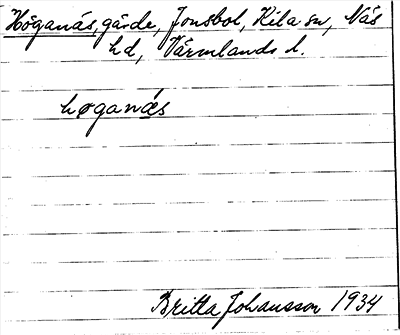 Höganäs, gärde, Jonsbol, Kila sn, Näs
hd, Värmlands l.
høganæs
Britta Johansson 1934